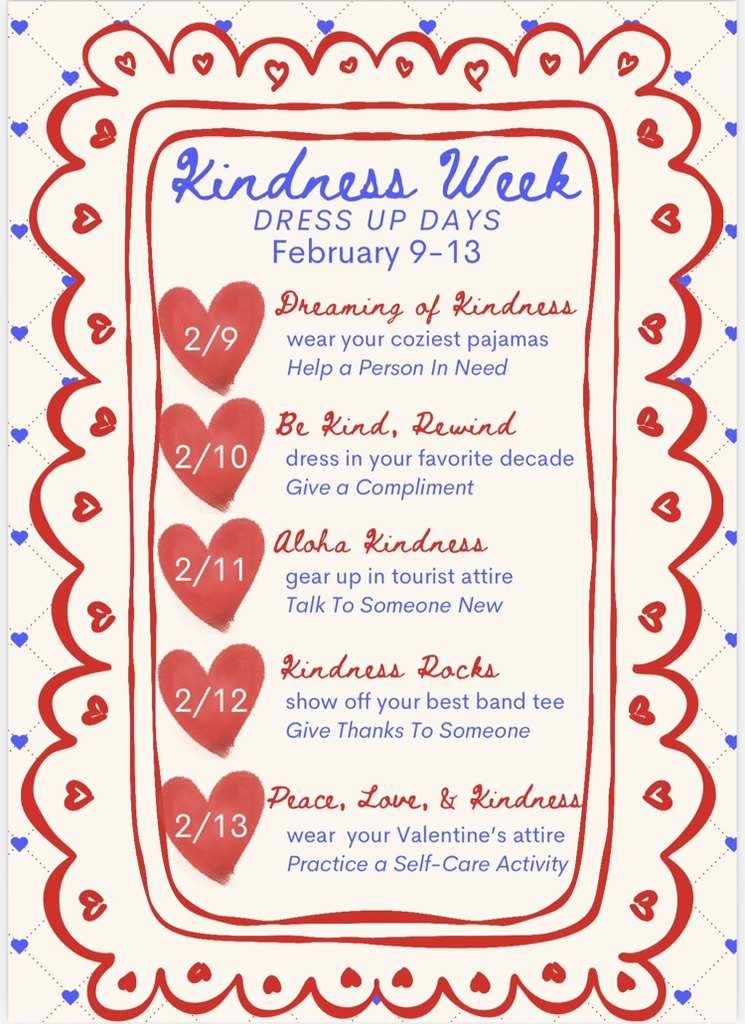 Kindness Week
DRESS UP DAYS
February 9-13
2/9
Dreaming of Kindness
wear your coziest pajamas
Help a Person In Need
2/10
Be Kind, Rewind
dress in your favorite decade
Give a Compliment
2/11
Aloha Kindness
gear up in tourist attire
Talk To Someone New
2/12
Kindness Rocks
show off your best band tee
Give Thanks To Someone
2/13
Peace, Love, & Kindness
wear your Valentine's attire
Practice a Self-Care Activity